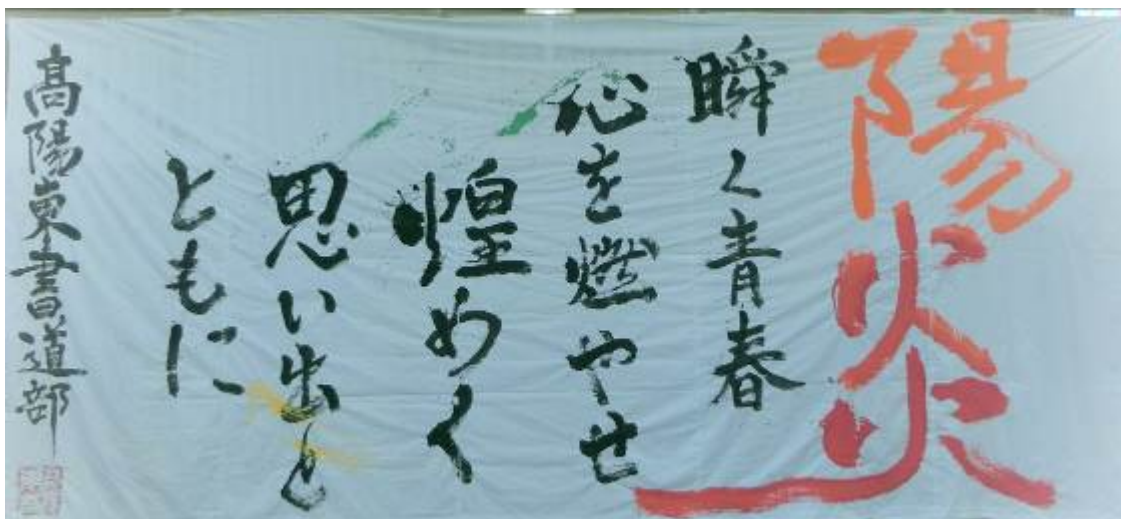 陽炎
瞬く青春
心を燃やせ
煌めく
思い出と
ともに
高陽東書道部